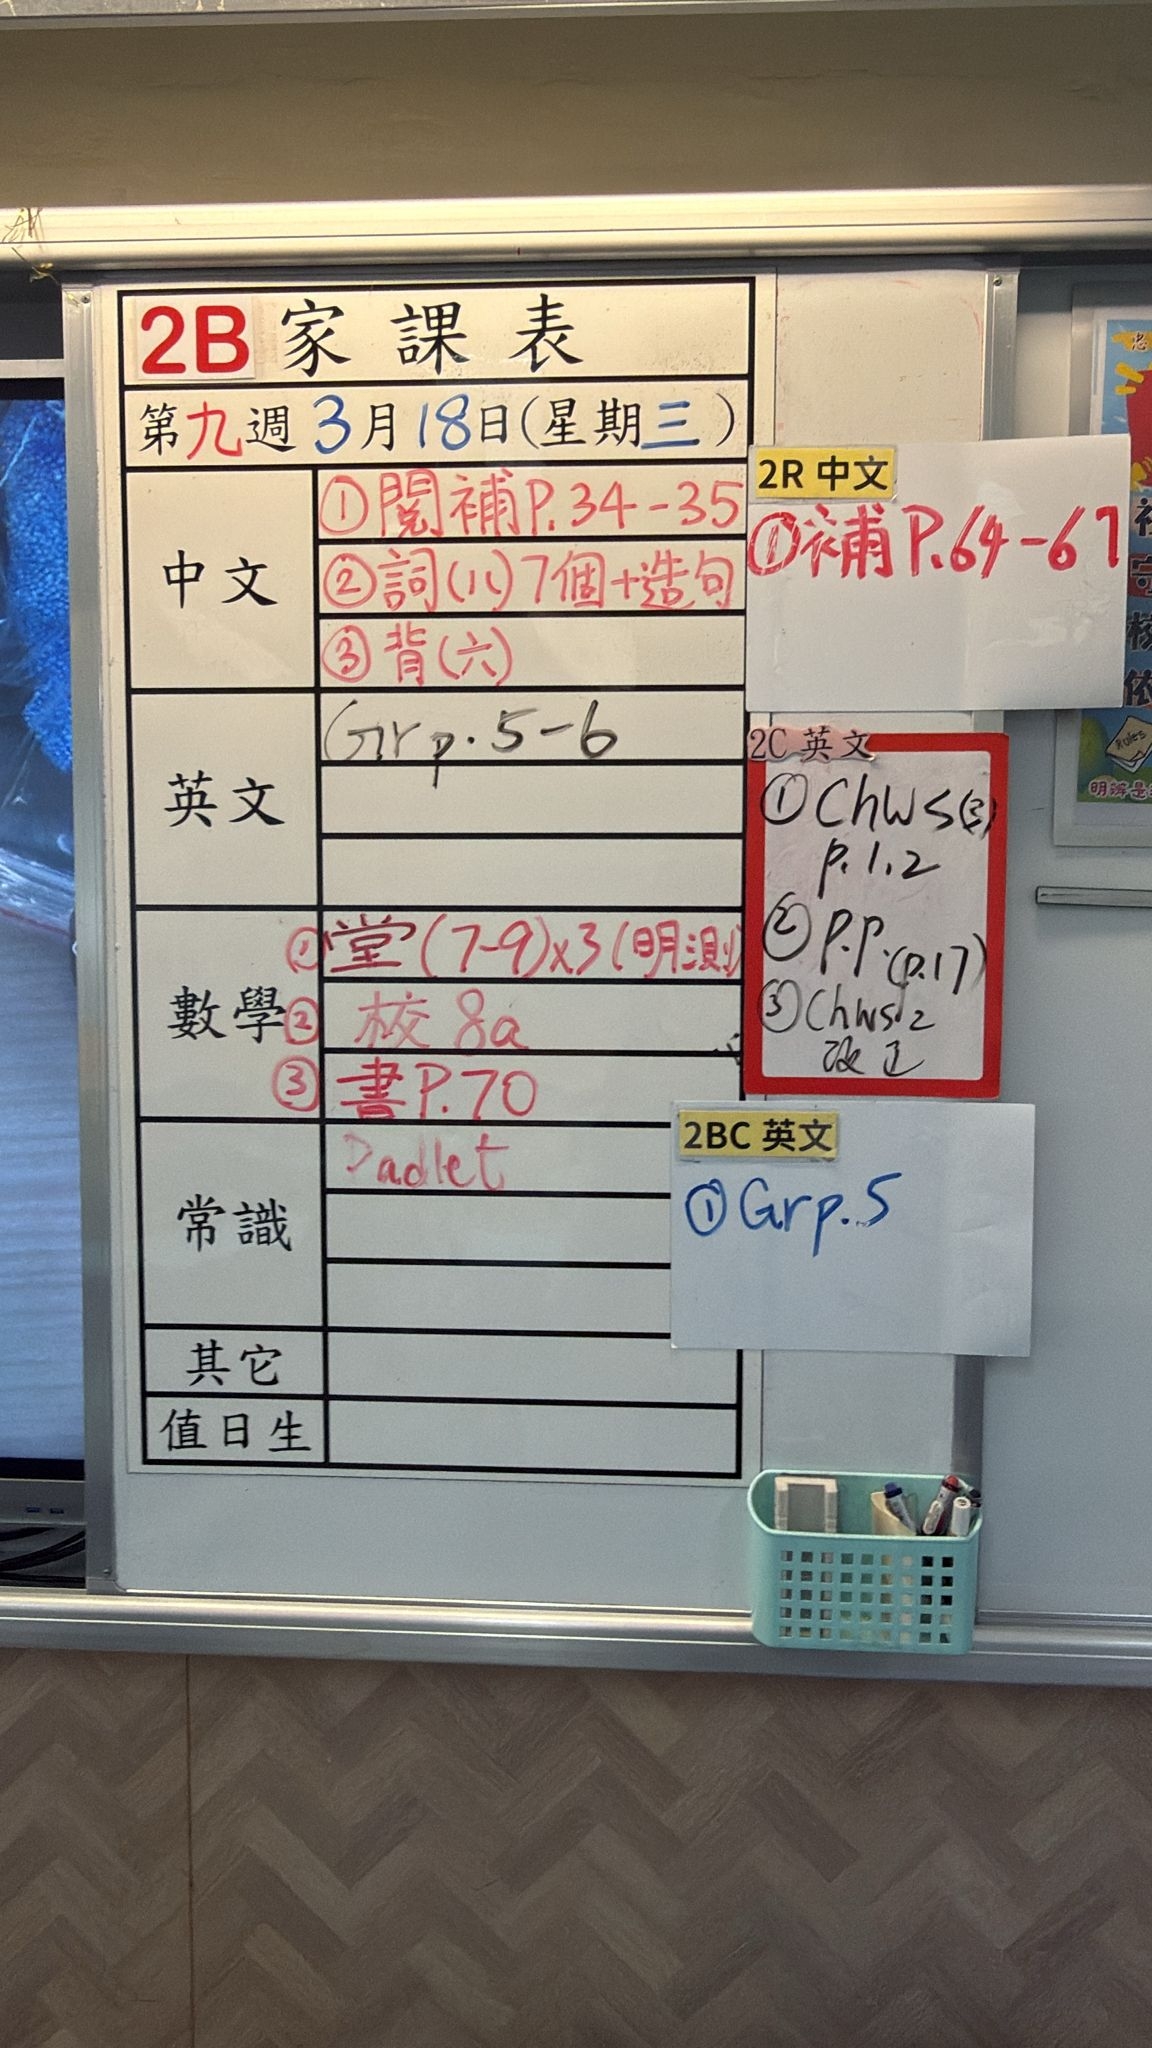 2B 家課表
第九週 3月18日(星期三)
中文
①閱補P.34-35
②詞(八)7個+造句
③背(六)
英文
Gr p.5-6
數學
①堂(7-9)x3(明測)
②校 8a
③書P.70
常識
Padlet
其它
值日生
2R 中文
①補P.64-67
2C 英文
①ChWS(3)
p.1,2
②P.P.(p.17)
③Chws2
改正
2BC 英文
①Gr p.5
Rules